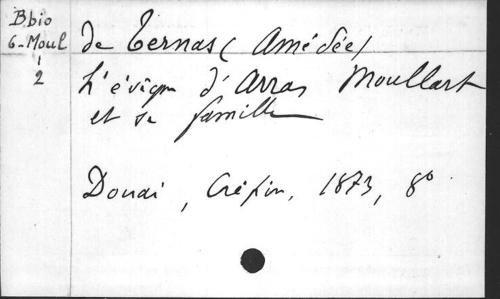 Bbio
6-Moul
2
de Ternas (Amédée)
L'évêque d'Arras Moullart
et sa famille
Douai, Crépin, 1873, 8°